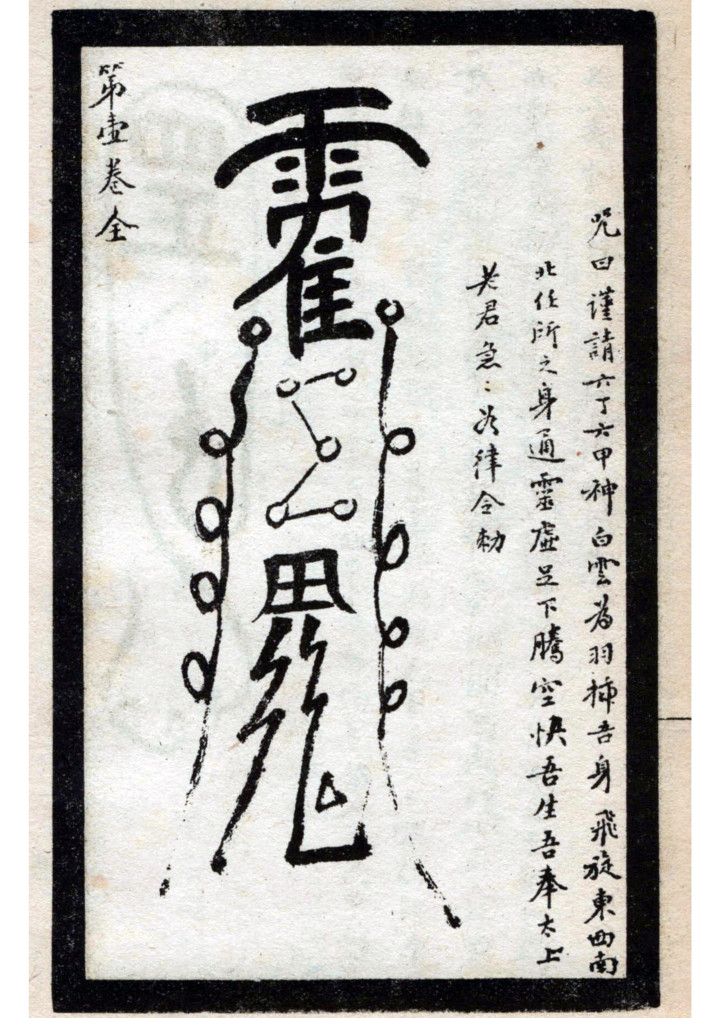 咒曰謹請六丁六甲神白雲為羽揷吾身飛旋東西南
北任所之身通靈虛足下騰空快吾生吾奉太上
老君急〻如律令勅
第壹卷全